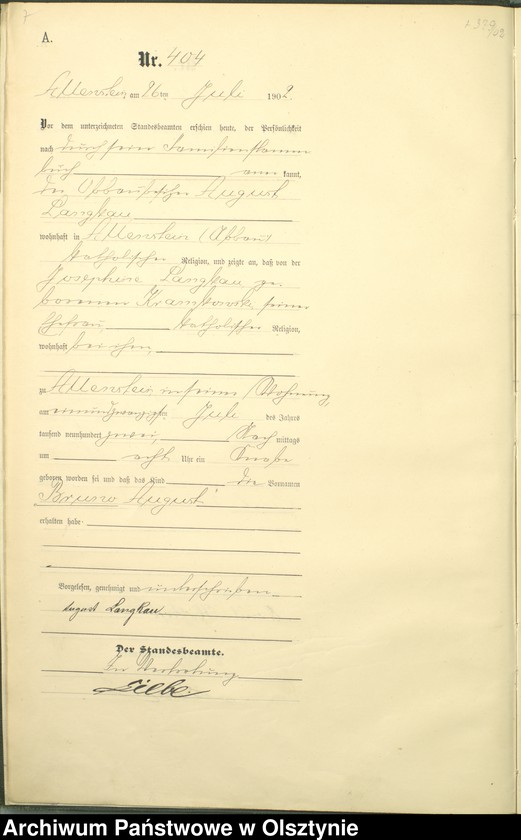 A.
Nr. 404
Allenstein am 26ten Juli 1902.
Vor dem unterzeichneten Standesbeamten erschien heute, der Persönlichkeit
nach durch sein Familienstamm
buch anerkannt,
der August
Langkau
wohnhaft in Allenstein (Abbau)
katholischer Religion, und zeigte an, daß von der
Josephine Langkau ge
borenen seiner
Ehefrau katholischer Religion,
wohnhaft bei ihm
zu Allenstein in seiner Wohnung
am einundzwanzigsten Juli des Jahres
tausend neunhundert zwei, Nachmittags
um acht Uhr ein Knabe
geboren worden sei und daß das Kind die Vornamen
Bruno August
erhalten habe
Vorgelesen, genehmigt und unterschrieben
August Langkau
Der Standesbeamte.
In Vertretung
Archiwum Państwowe w Olsztynie